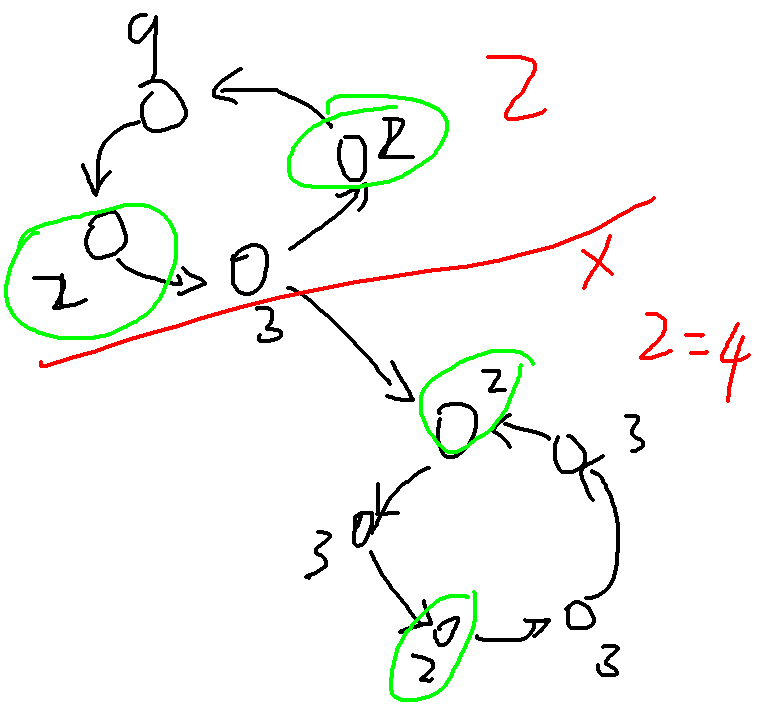 9
2
2
2
3
x
2=4
2
3
3
2
3